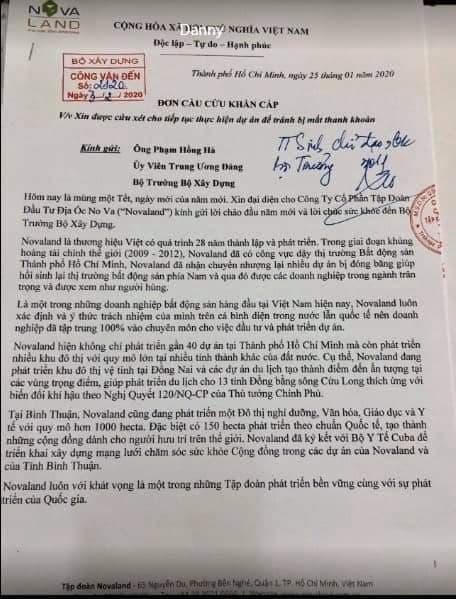 NOVA
LAND
CỘNG HÒA XÃ HỘI CHỦ NGHĨA VIỆT NAM
Danny
Độc lập – Tự do – Hạnh phúc
Thành phố Hồ Chí Minh, ngày 25 tháng 01 năm 2020
BỘ XÂY DỰNG
CÔNG VĂN ĐẾN
Số:
Ngày 3/2/2020
ĐƠN CẦU CỨU KHẨN CẤP
V/v Xin được cứu xét cho tiếp tục thực hiện dự án để tránh bị mất thanh khoản
Kính gửi: Ông Phạm Hồng Hà
Ủy Viên Trung Ương Đảng
Bộ Trưởng Bộ Xây Dựng
Hôm nay là mùng một Tết, ngày mới của năm mới. Xin đại diện cho Công Ty Cổ Phần Tập Đoàn
Đầu Tư Địa Ốc No Va (“Novaland”) kính gửi lời chào đầu năm mới và lời chúc sức khỏe đến Bộ
Trưởng Bộ Xây Dựng.
Novaland là thương hiệu Việt có quá trình 28 năm thành lập và phát triển. Trong giai đoạn khủng
hoảng tài chính thế giới (2009 - 2012), Novaland đã có công vực dậy thị trường Bất động sản
Thành phố Hồ Chí Minh, Novaland đã nhận chuyển nhượng lại nhiều dự án bị đóng băng giúp
hồi sinh lại thị trường bất động sản phía Nam và qua đó được các doanh nghiệp trong ngành trân
trọng và được xem như người hùng.
Là một trong những doanh nghiệp bất động sản hàng đầu tại Việt Nam hiện nay, Novaland luôn
xác định và ý thức trách nhiệm của mình trên cả bình diện trong nước lẫn quốc tế nên doanh
nghiệp đã tập trung 100% vào chuyên môn cho việc đầu tư và phát triển dự án.
Novaland hiện không chỉ phát triển gần 40 dự án tại Thành phố Hồ Chí Minh mà còn phát triển
nhiều khu đô thị với quy mô lớn tại nhiều tỉnh thành khác của đất nước. Cụ thể, Novaland đang
phát triển khu đô thị vệ tinh tại Đồng Nai và các dự án du lịch tạo thành điểm đến ấn tượng tại
các vùng trọng điểm, giúp phát triển du lịch cho 13 tỉnh Đồng bằng sông Cửu Long thích ứng với
biến đổi khí hậu theo Nghị Quyết 120/NQ-CP của Thủ tướng Chính Phủ.
Tại Bình Thuận, Novaland cũng đang phát triển một Đô thị nghỉ dưỡng, Văn hóa, Giáo dục và Y
tế với quy mô hơn 1000 hecta. Đặc biệt có 150 hecta phát triển theo chuẩn Quốc tế, tạo thành
những cộng đồng dành cho người hưu trí trên thế giới. Novaland đã ký kết với Bộ Y Tế Cuba để
triển khai xây dựng mạng lưới chăm sóc sức khỏe Cộng đồng trong các dự án của Novaland và
của Tỉnh Bình Thuận.
Novaland luôn với khát vọng là một trong những Tập đoàn phát triển bền vững cùng với sự phát
triển của Quốc gia.
1
Tập đoàn Novaland - 65 Nguyễn Du, Phường Bến Nghé, Quận 1, TP. Hồ Chí Minh, Việt Nam